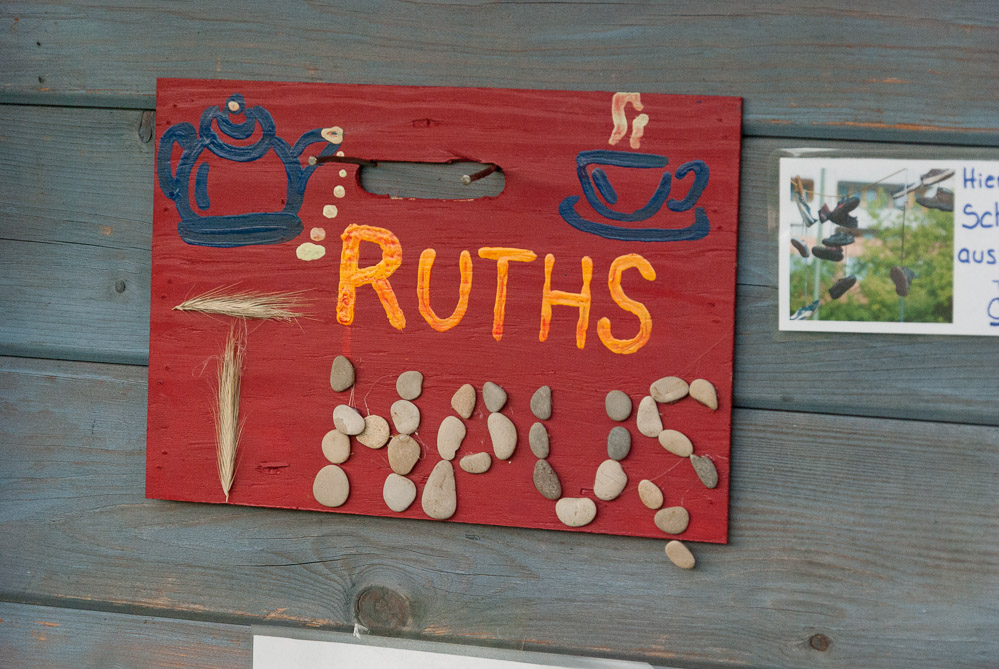 RUTHS
T HAUS
Hier
Sch
aus